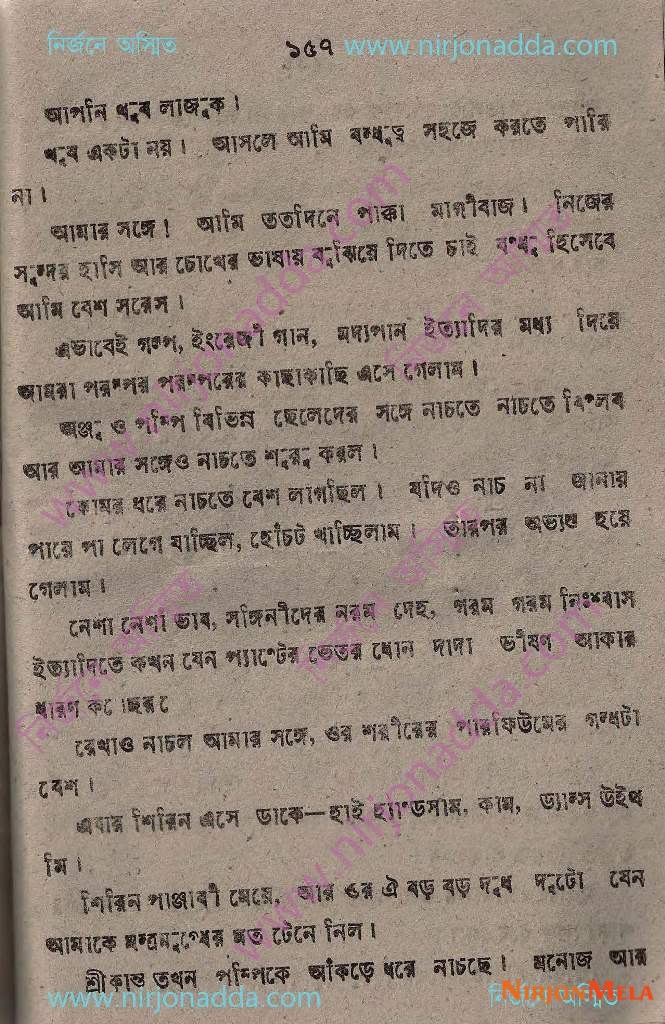 নির্জনে অস্মিত ১৫৭ www.nirjonadda.com
আপনি খুব লাজুক।
খুব একটা নয়। আসলে আমি বন্ধুত্ব সহজে করতে পারি
না।
আমার সঙ্গে! আমি ততদিনে পাক্কা মাগীবাজ। নিজের
সুন্দর হাসি আর চোখের ভাষায় বুঝিয়ে দিতে চাই বন্ধু হিসেবে
আমি বেশ সরেস।
এভাবেই গল্প, ইংরেজী গান, মদ্যপান ইত্যাদির মধ্য দিয়ে
আমরা পরস্পর পরস্পরের কাছাকাছি এসে গেলাম।
অঞ্জু ও পম্পি বিভিন্ন ছেলেদের সঙ্গে নাচতে নাচতে বিপ্লব
আর আমার সঙ্গেও নাচতে শুরু করল।
কোমর ধরে নাচতে বেশ লাগছিল। যদিও নাচ না জানায়
পায়ে পা লেগে যাচ্ছিল, হোঁচট খাচ্ছিলাম। তারপর অভ্যস্ত হয়ে
গেলাম।
নেশা নেশা ভাব, সঙ্গিনীদের নরম দেহ, গরম গরম নিঃশ্বাস
ইত্যাদিতে কখন যেন প্যান্টের ভেতর ধোন দাদা ভীষণ আকার
ধারণ
রেখাও নাচল আমার সঙ্গে, ওর শরীরের পারফিউমের গন্ধটা
বেশ।
এবার শিরিন এসে ডাকে—হাই হ্যান্ডসাম, কাম, ড্যান্স উইথ
মি।
শিরিন পাঞ্জাবী মেয়ে, আর ওর ঐ বড় বড় দুধ দুটো যেন
আমাকে মন্ত্রমুগ্ধের মত টেনে নিল।
শ্রীকান্ত তখন পম্পিকে আঁকড়ে ধরে নাচছে। মনোজ আর
www.nirjonadda.com নির্জনে অস্মিত
NIRJONMELA
www.nirjonadda.com নির্জনে অস্মিত
www.nirjonadda.com নির্জনে অস্মিত
নির্জনে অস্মিত www.nirjonadda.com